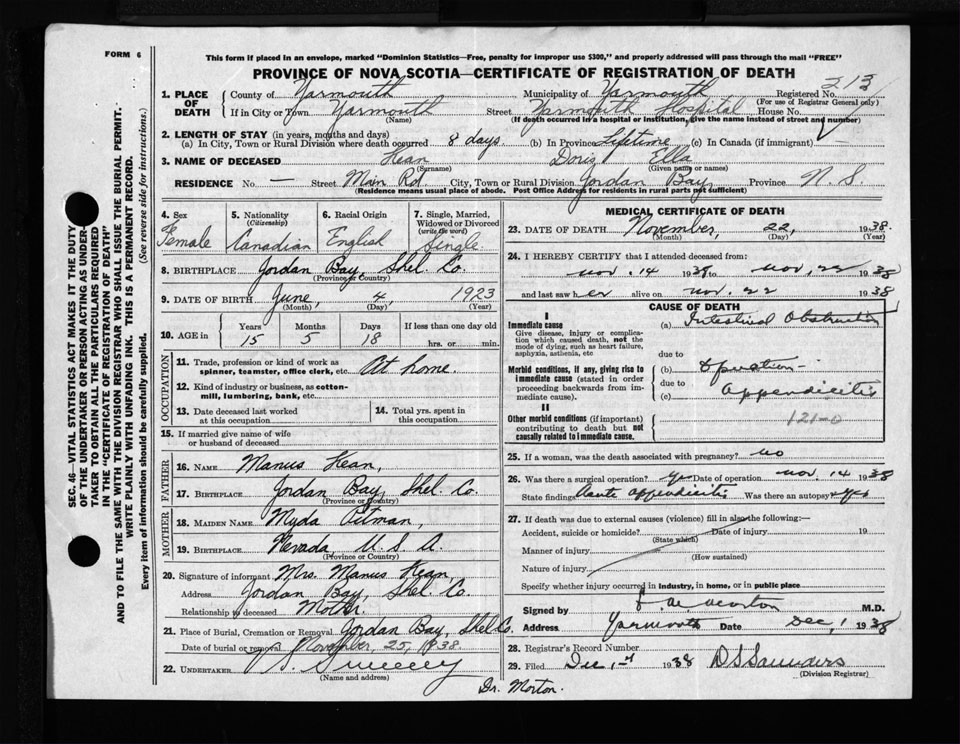 FORM 6
This form if placed in an envelope, marked "Dominion Statistics—Free, penalty for improper use $300," and properly addressed will pass through the mail "FREE"
PROVINCE OF NOVA SCOTIA—CERTIFICATE OF REGISTRATION OF DEATH
SEC. 46—VITAL STATISTICS ACT MAKES IT THE DUTY
OF THE UNDERTAKER OR PERSON ACTING AS UNDER-
TAKER TO OBTAIN ALL THE PARTICULARS REQUIRED
IN THE "CERTIFICATE OF REGISTRATION OF DEATH"
AND TO FILE THE SAME WITH THE DIVISION REGISTRAR WHO SHALL ISSUE THE BURIAL PERMIT.
WRITE PLAINLY WITH UNFADING INK. THIS IS A PERMANENT RECORD.
Every item of information should be carefully supplied. (See reverse side for instructions.)
1. PLACE OF DEATH
County of Yarmouth Municipality of Yarmouth Registered No. 213
(For use of Registrar General only)
If in City or Town Yarmouth Street Yarmouth Hospital House No.
(Name) (If death occurred in a hospital or institution, give the name instead of street and number)
2. LENGTH OF STAY (in years, months and days)
(a) In City, Town or Rural Division where death occurred 8 days. (b) In Province Lifetime (c) In Canada (if immigrant) —
3. NAME OF DECEASED Kean Doris Ella
(Surname) (Given name or names)
RESIDENCE No. — Street Main Rd City, Town or Rural Division Jordan Bay, Province N.S.
(Residence means usual place of abode. Post Office Address for residents in rural parts not sufficient)
4. Sex Female
5. Nationality (Citizenship) Canadian
6. Racial Origin English
7. Single, Married, Widowed or Divorced (write the word) Single
8. BIRTHPLACE Jordan Bay, Shel. Co.
(Province or Country)
9. DATE OF BIRTH June, 4, 1923
(Month) (Day) (Year)
10. AGE in Years 15 Months 5 Days 18 If less than one day old hrs. or min.
OCCUPATION
11. Trade, profession or kind of work as spinner, teamster, office clerk, etc. At home.
12. Kind of industry or business, as cotton-mill, lumbering, bank, etc.
13. Date deceased last worked at this occupation
14. Total yrs. spent in this occupation
15. If married give name of wife or husband of deceased
FATHER
16. NAME Manus Kean,
17. BIRTHPLACE Jordan Bay, Shel. Co.
(Province or Country)
MOTHER
18. MAIDEN NAME Myda Pitman,
19. BIRTHPLACE Nevada, U.S.A.
(Province or Country)
20. Signature of informant Mrs. Manus Kean
Address Jordan Bay, Shel. Co.
Relationship to deceased Mother.
21. Place of Burial, Cremation or Removal Jordan Bay, Shel Co.
Date of burial or removal November, 25, 1938.
22. UNDERTAKER Sweeney
(Name and address)
Dr. Morton.
MEDICAL CERTIFICATE OF DEATH
23. DATE OF DEATH November, 22, 1938.
(Month) (Day) (Year)
24. I HEREBY CERTIFY that I attended deceased from:
nov. 14 1938 to nov, 22 1938
and last saw her alive on nov. 22 1938
CAUSE OF DEATH
I
Immediate cause
Give disease, injury or complication which caused death, not the mode of dying, such as heart failure, asphyxia, asthenia, etc
(a) Intestinal Obstruction
due to
Morbid conditions, if any, giving rise to immediate cause (stated in order proceeding backwards from immediate cause).
(b) Operation—
due to
(c) Appendicitis
II
Other morbid conditions (if important) contributing to death but not causally related to immediate cause.
121-0
25. If a woman, was the death associated with pregnancy? no
26. Was there a surgical operation? yes Date of operation nov. 14 1938
State findings Acute appendicitis Was there an autopsy? yes
27. If death was due to external causes (violence) fill in also the following:—
Accident, suicide or homicide? Date of injury 19
(State which)
Manner of injury
(How sustained)
Nature of injury
Specify whether injury occurred in industry, in home, or in public place
Signed by Morton M.D.
Address Yarmouth Date Dec, 1 1938
28. Registrar's Record Number
29. Filed Dec 1st 1938 D S Saunders
(Division Registrar)